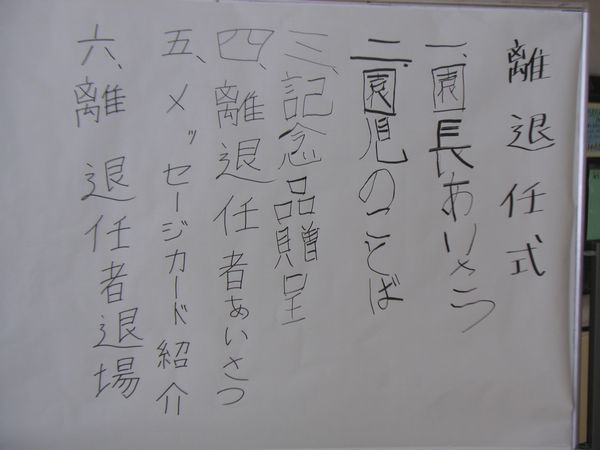 離退任式
一、園長あいさつ
二、園児のことば
三、記念品贈呈
四、離退任者あいさつ
五、メッセージカード紹介
六、離退任者退場